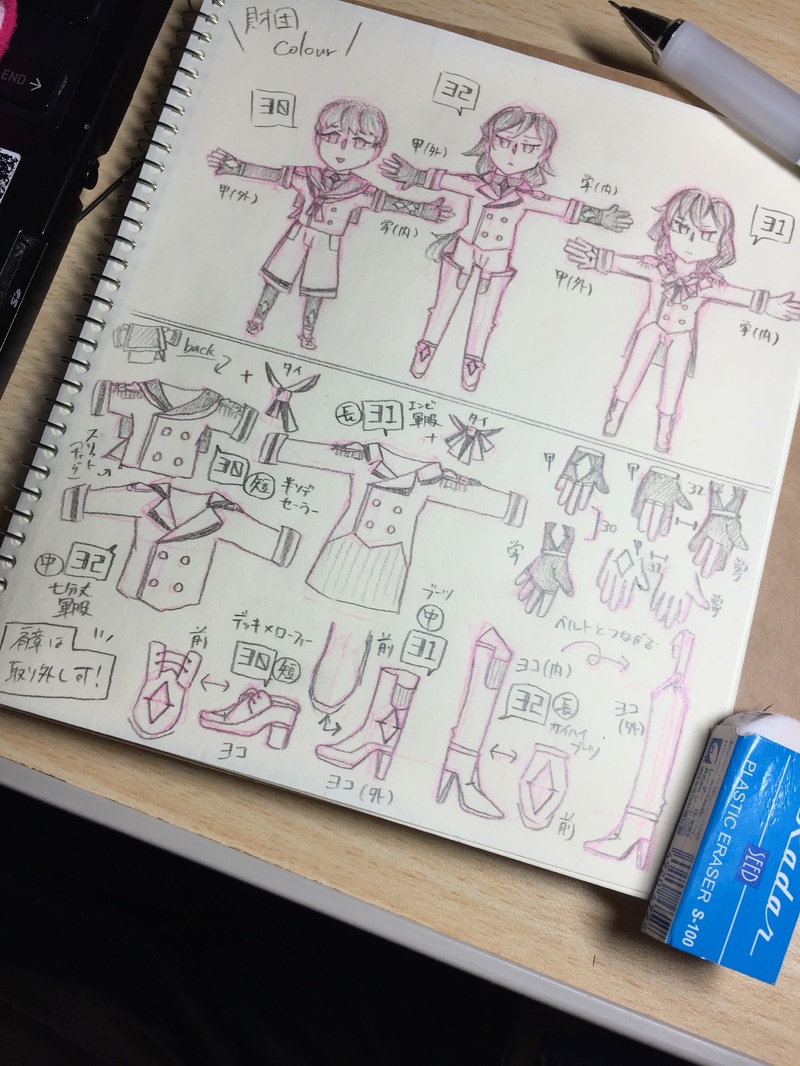 財団
colour
30
32
31
甲(外)
掌(内)
甲(外)
掌(内)
甲(外)
掌(内)
back
+
タイ
30
短
半ソデ
セーラー
長
31
エンビ
軍服
+
タイ
中
32
七分丈
軍服
肩章は
取り外し可!
甲
甲
32
30
掌
甲
31
掌
掌
前
デッキ×ローファー
30
短
ヨコ
前
ブーツ
中
31
ヨコ(外)
ヨコ(内)
32
長
カイハイ
ブーツ
前
ベルトとつながる
ヨコ
(外)
END
Radar
SEED
PLASTIC ERASER S-100